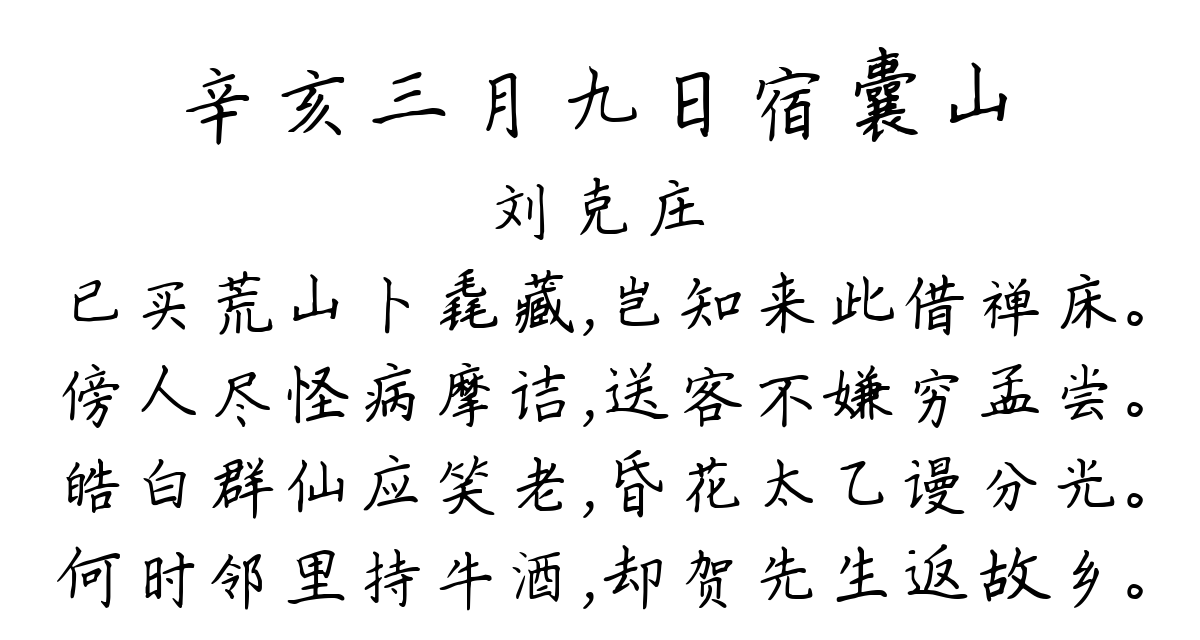 辛亥三月九日宿囊山
刘克庄
已买荒山卜毳藏,岂知来此借禅床。
傍人尽怪病摩诘,送客不嫌穷孟尝。
皓白群仙应笑老,昏花太乙谩分光。
何时邻里持牛酒,却贺先生返故乡。